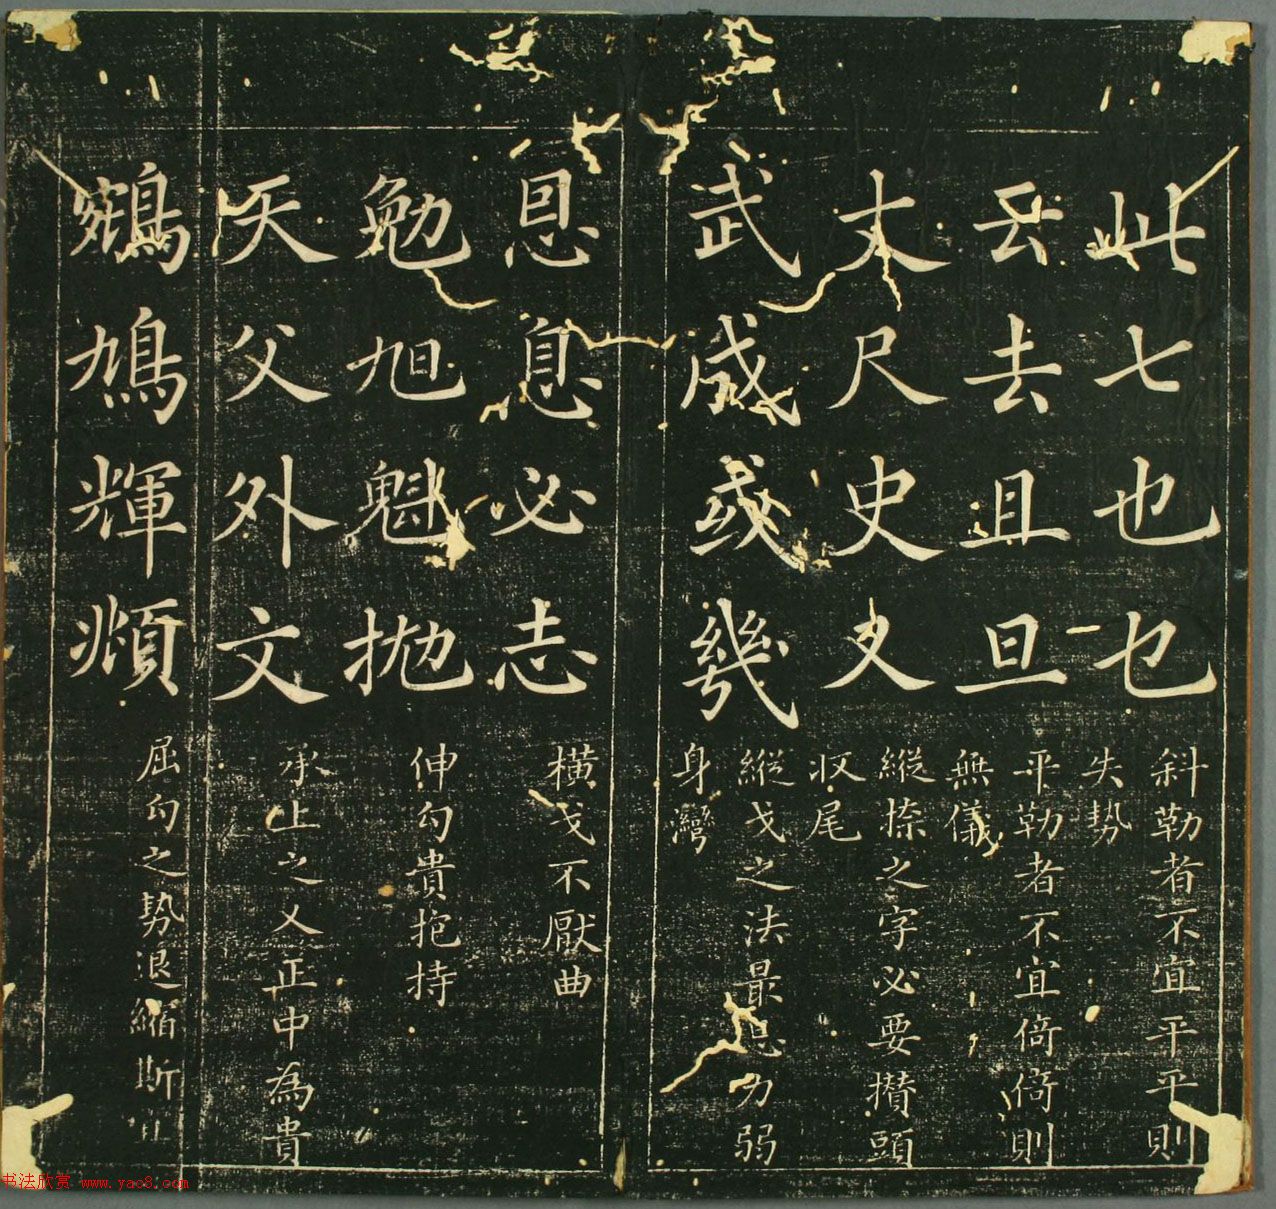 此七也乜
斜勒者不宜平平則
失勢
云去且旦
平勒者不宜倚倚則
無儀
丈尺史又
縱捺之字必要攢頭
收尾
武成或幾
縱戈之法最忌力弱
身彎
恩息必志
橫戈不厭曲
勉旭魁拋
伸勾貴抱持
天父外文
承上之乂正中為貴
鵷鳩輝頫
屈勾之勢退縮斯宜
书法欣赏 www.yac8.com